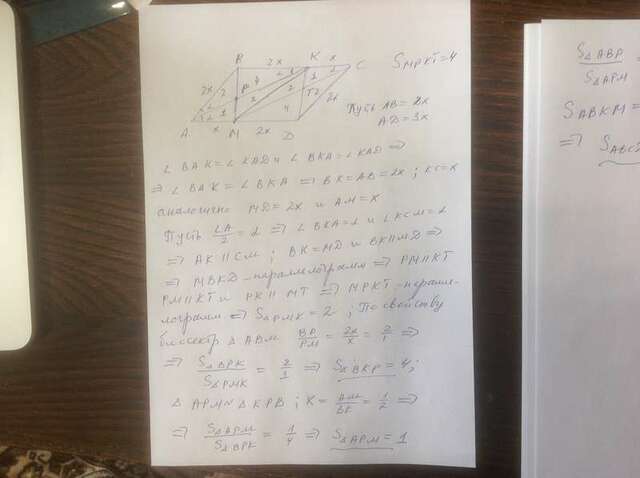 B 2x K x C
S MPKT = 4
2x 2 P 4
A x M 2x D
Пусть AB = 2x
AD = 3x
∠ BAK = ∠ KAD и ∠ BKA = ∠ KAD ⇒
⇒ ∠ BAK = ∠ BKA ⇒ BK = AB = 2x ; KC = x
аналогично MD = 2x и AM = x
Пусть ∠A/2 = α ⇒ ∠ BKA = α и ∠ KCM = α
⇒ AK ∥ CM ; BK = MD и BK ∥ MD ⇒
⇒ MBKD - параллелограмм ⇒ PM ∥ KT
PM ∥ KT и PK ∥ MT ⇒ MPKT - паралле-
лограмм ⇒ S△PMK = 2 ; По свойству
биссектр △ ABM BP/PM = 2x/x = 2/1 ⇒
⇒ S△BPK/S△PMK = 2/1 ⇒ S△BKP = 4;
△ APM ~ △ KPB ; K = AM/BK = 1/2 ⇒
⇒ S△APM/S△BPK = 1/4 ⇒ S△APM = 1
S△ABP/S△APM =
SABKM =
⇒ SABCD